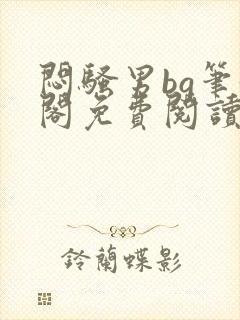 悶騷男bg筆
閣免費閱讀
鈴蘭蝶影